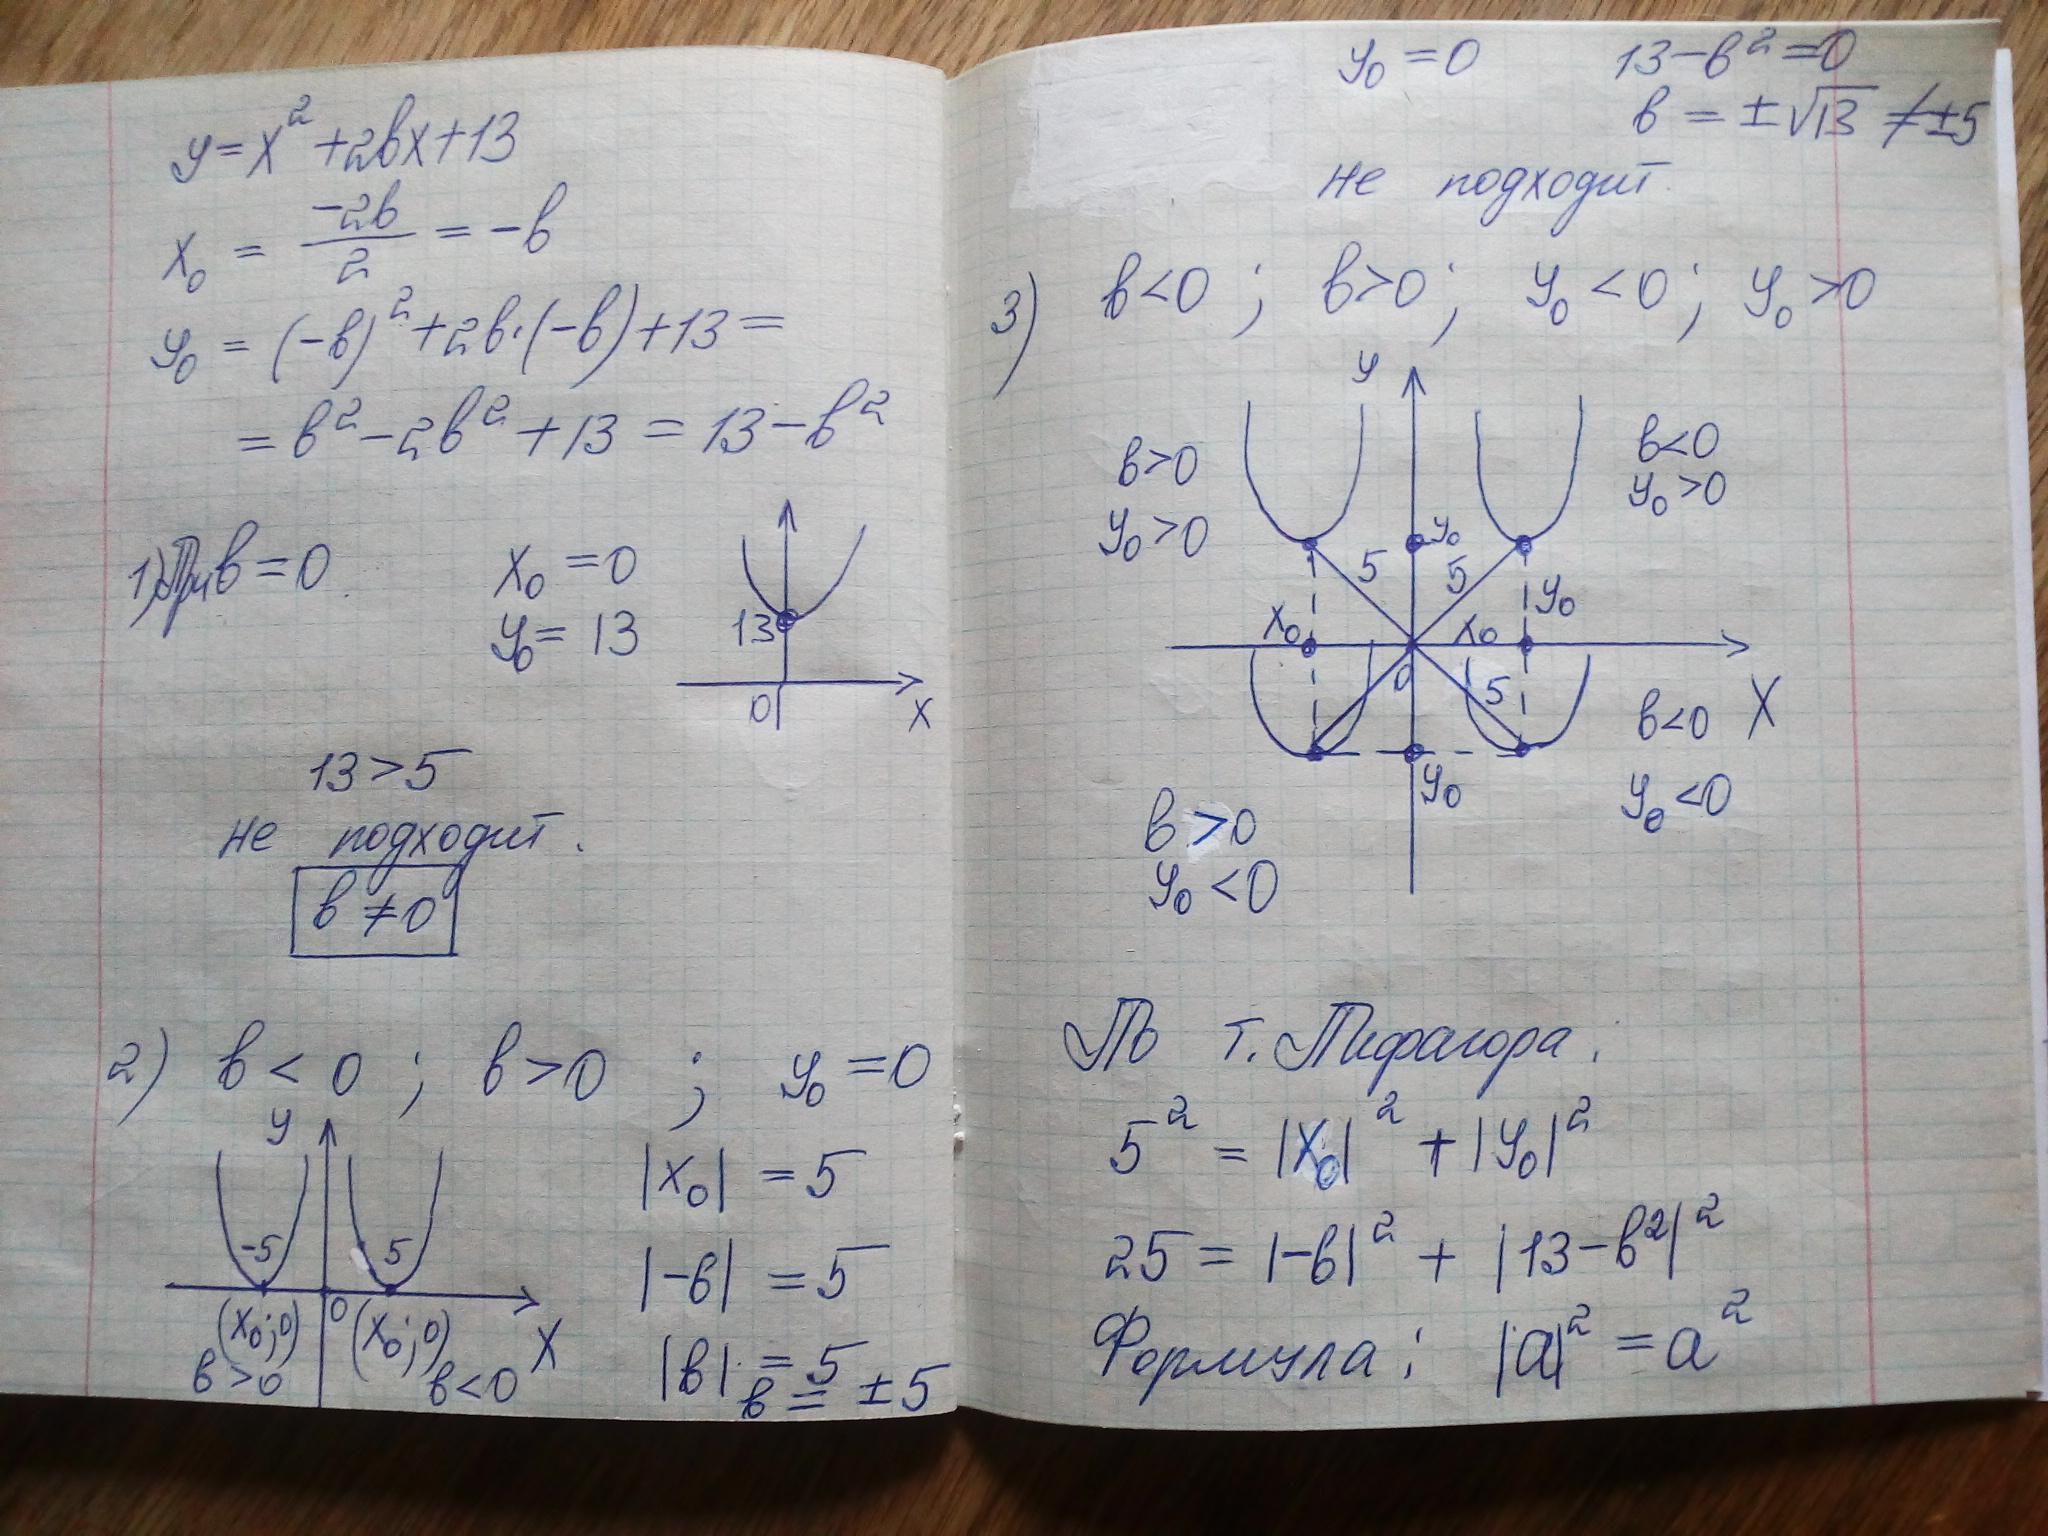 y = x² + 2bx + 13
x₀ = -2b/2 = -b
y₀ = (-b)² + 2b·(-b) + 13 =
= b² - 2b² + 13 = 13 - b²
1) При b = 0
x₀ = 0
y₀ = 13
13
0
x
13 > 5
не подходит.
b ≠ 0
2) b < 0 ; b > 0 ; y₀ = 0
y
-5
5
(x₀; 0)
0
(x₀; 0)
X
b > 0
b < 0
|x₀| = 5
|-b| = 5
|b| = 5
b = ±5
y₀ = 0
13 - b² = 0
b = ±√13 ≠ ±5
не подходит.
3) b < 0 ; b > 0 ; y₀ < 0 ; y₀ > 0
y
b > 0
y₀ > 0
b < 0
y₀ > 0
y₀
5
5
y₀
x₀
x₀
0
5
X
b < 0
y₀ < 0
y₀
b > 0
y₀ < 0
По т. Пифагора:
5² = |x₀|² + |y₀|²
25 = |-b|² + |13 - b²|²
Формула: |a|² = a²